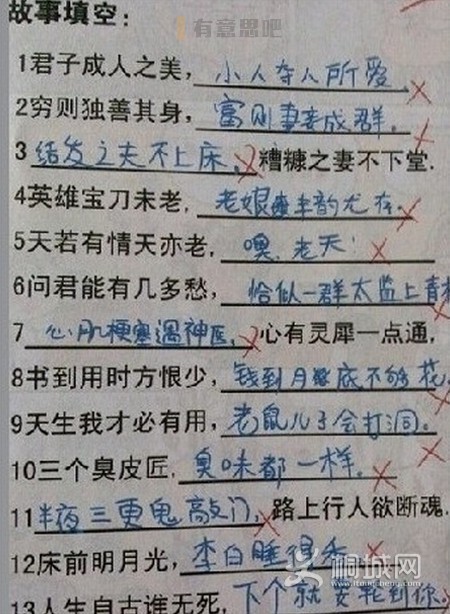 有意思吧
故事填空:
1君子成人之美, 小人夺人所爱.
2穷则独善其身, 富则妻妾成群.
3 结发之夫不上床, 糟糠之妻不下堂.
4英雄宝刀未老, 老娘丰韵尤存.
5天若有情天亦老, 噢.老天!
6问君能有几多愁, 恰似一群太监上青
7 心肌梗塞遇神医, 心有灵犀一点通,
8书到用时方恨少, 钱到月底不够花.
9天生我才必有用, 老鼠儿子会打洞.
10三个臭皮匠, 臭味都一样.
11半夜三更鬼敲门, 路上行人欲断魂.
12床前明月光, 李白睡得香.
13人生自古谁无死, 下个就要轮到你
桐城网